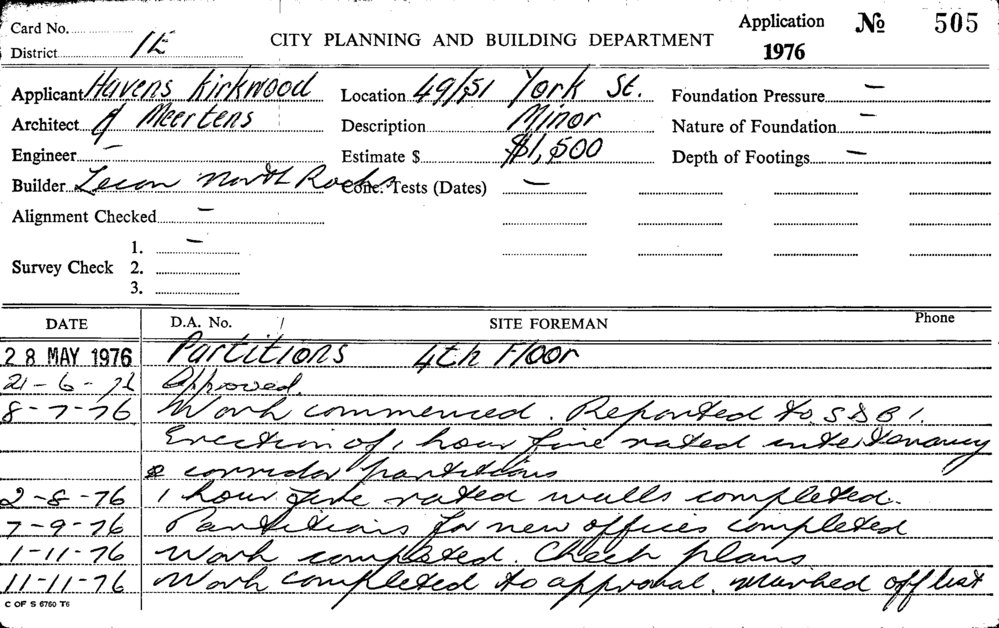 Card No.
District 1E
CITY PLANNING AND BUILDING DEPARTMENT
Application No 505
1976
Applicant Havens Kirkwood Location 49/51 York St. Foundation Pressure –
Architect A Meertens Description Minor Nature of Foundation –
Engineer – Estimate $ $1,500 Depth of Footings –
Builder Lecon North Rocks Conc. Tests (Dates) –
Alignment Checked –
Survey Check 1. –
2.
3.
DATE D.A. No. / SITE FOREMAN Phone
28 MAY 1976 Partitions 4th Floor
21-6-76 Approved.
8-7-76 Work commenced. Reported to S&BI.
Erection of 1 hour fire rated intertenancy
& corridor partitions
2-8-76 1 hour fire rated walls completed.
7-9-76 Partitions for new offices completed
1-11-76 Work completed. Check plans
11-11-76 Work completed to approval. Marked off list
C OF S 6760 T6